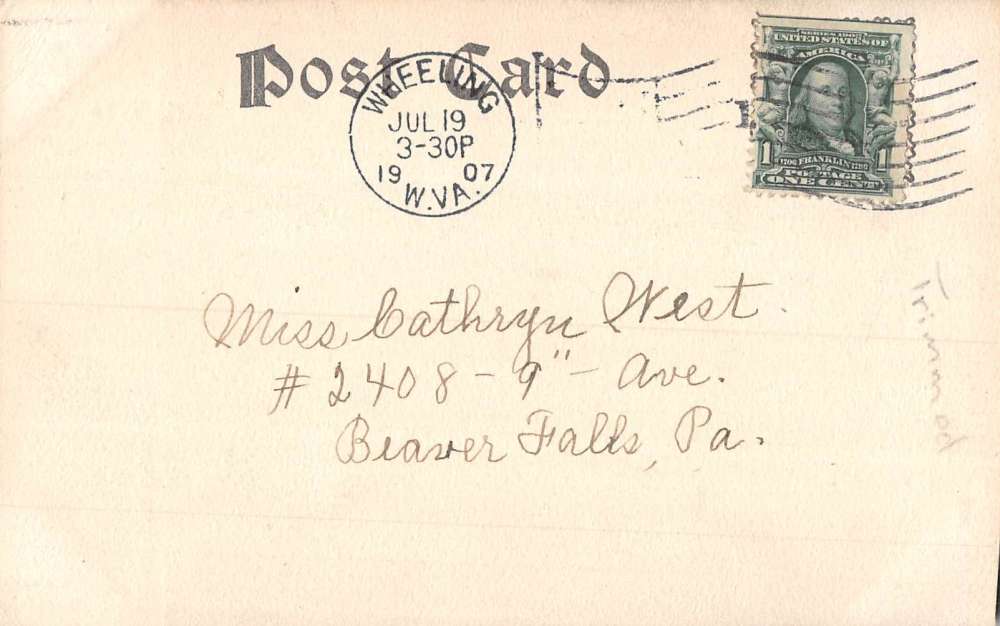 Post Card
WHEELING
JUL 19
3-30P
19 07
W.VA.
SERIES 1902
UNITED STATES OF
AMERICA
1706 FRANKLIN 1790
1 1
POSTAGE
ONE CENT
Miss Cathryn West.
#2408 - 9" - Ave.
Beaver Falls, Pa.
Trimmed